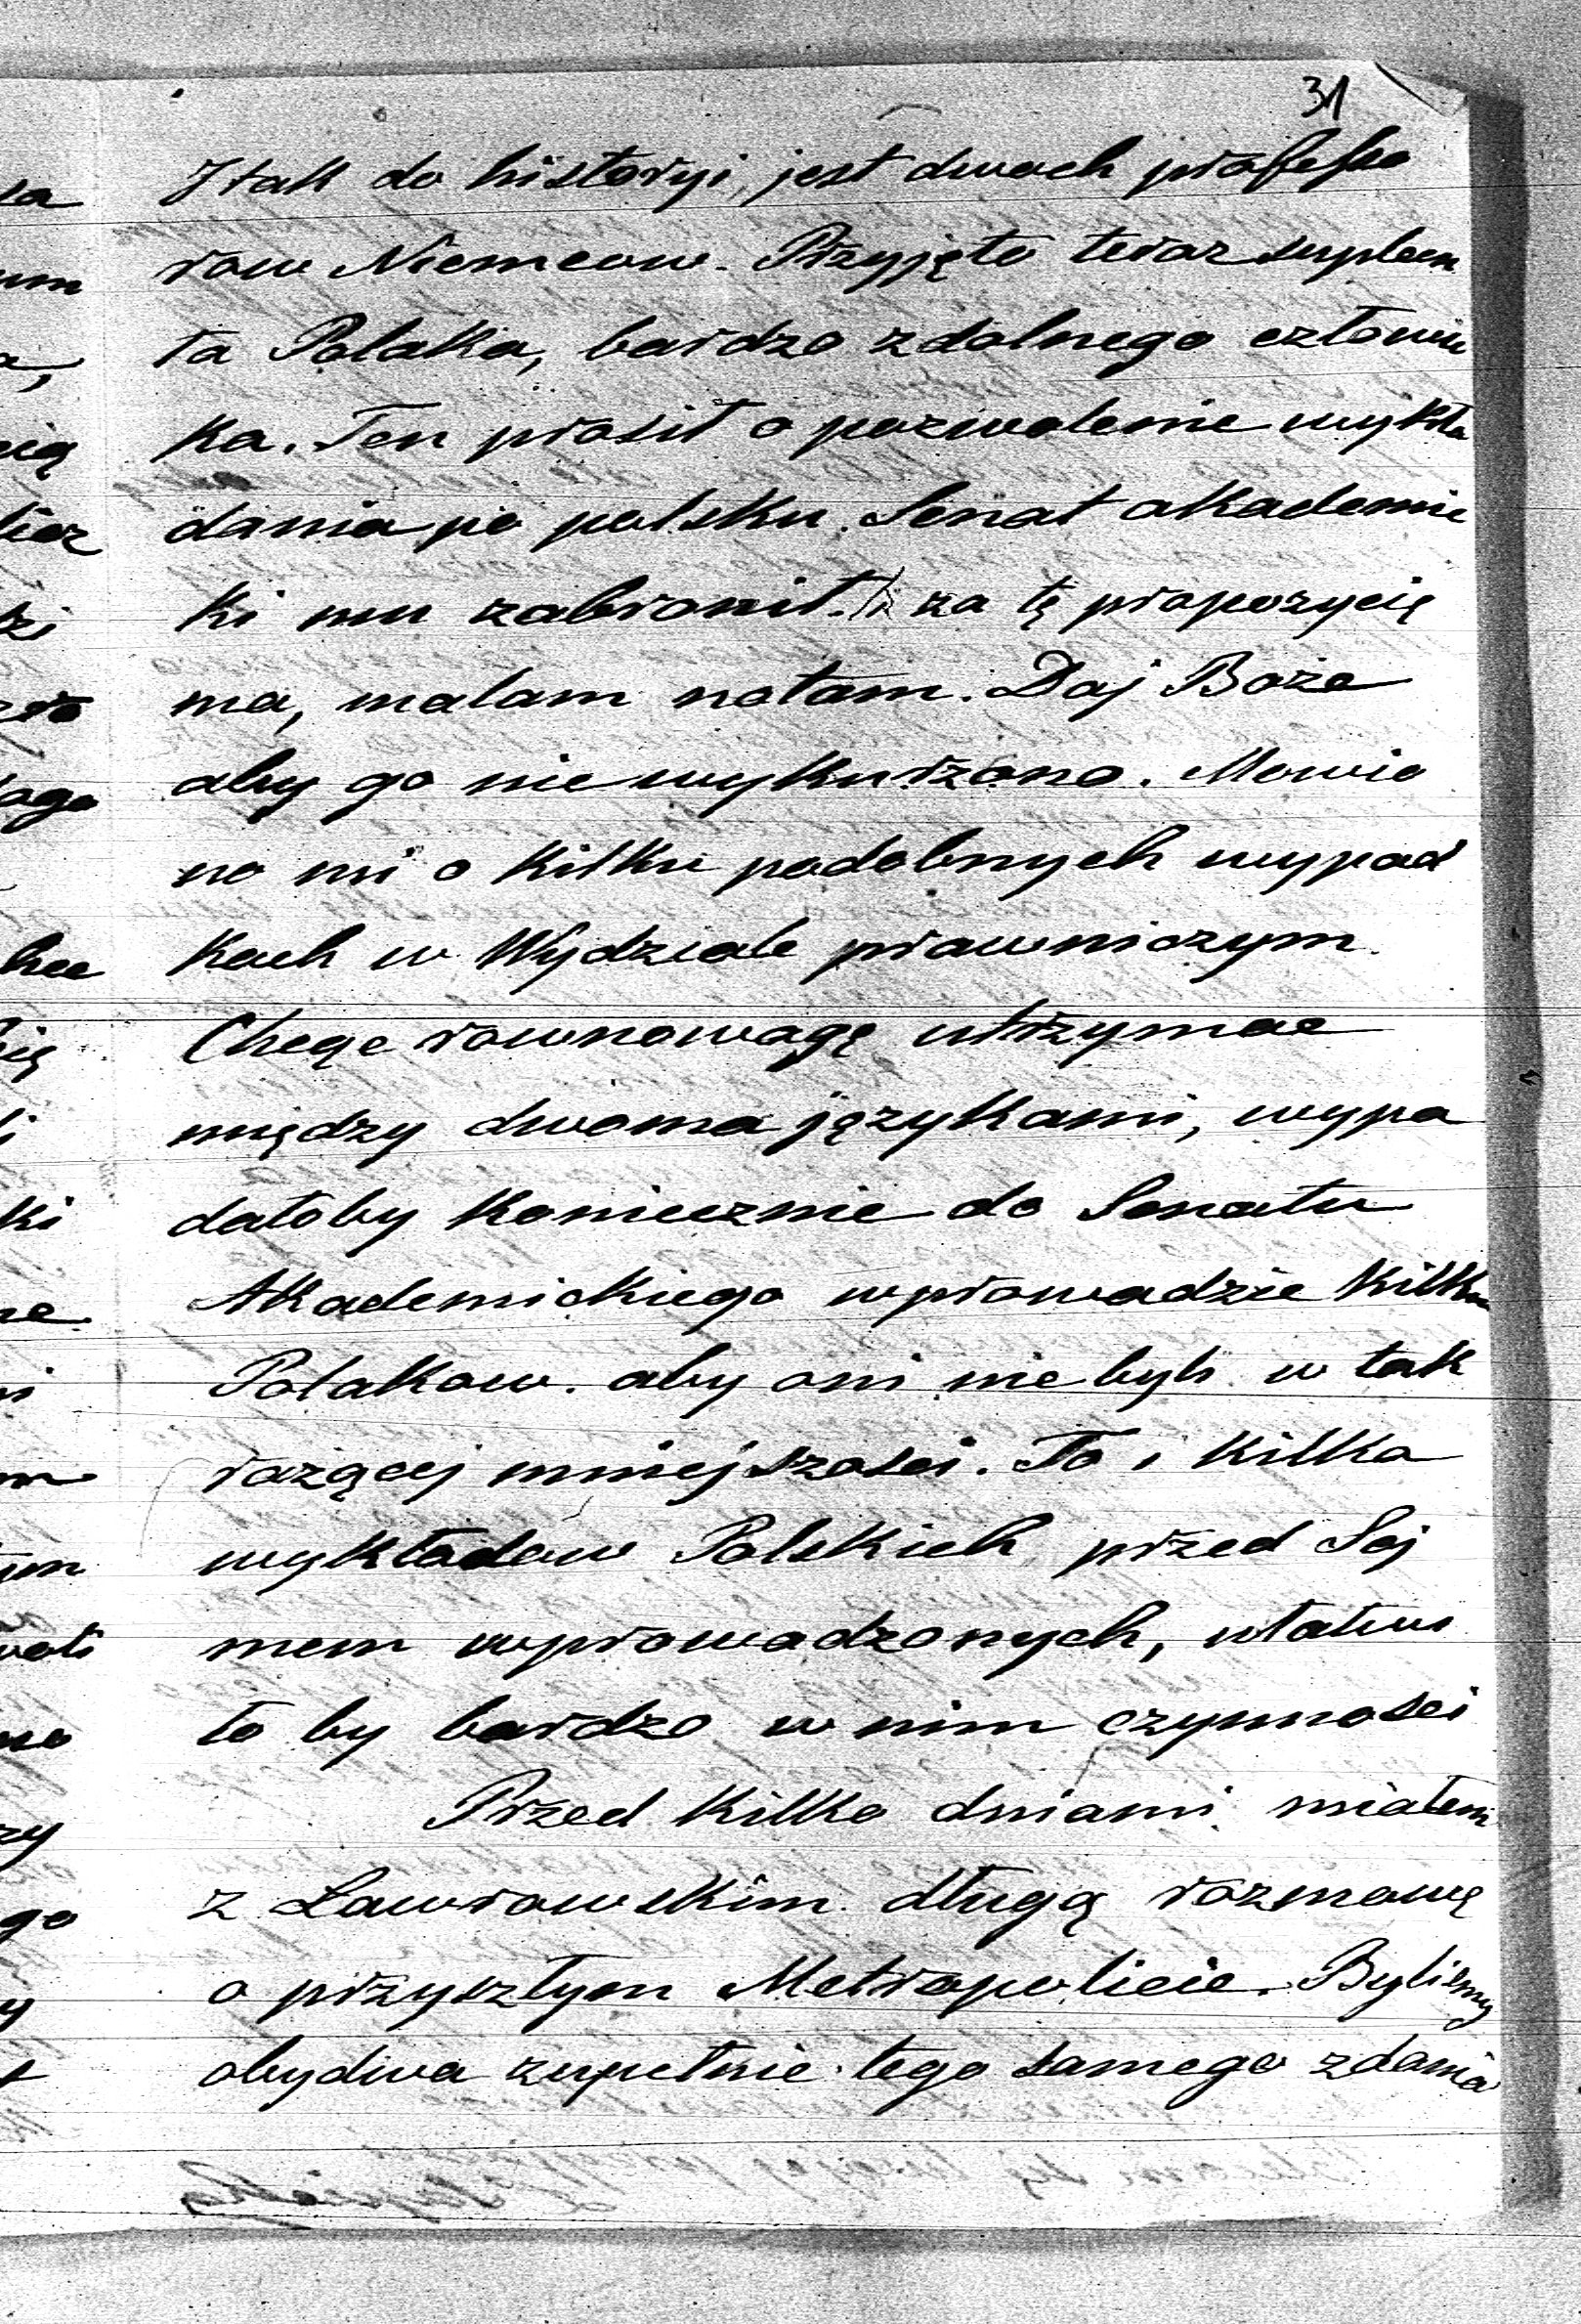 31
I tak do historyi, jest dwoch professo
row Niemcow. Przyjęto teraz suplen
ta Polaka, bardzo zdolnego człowie
ka. Ten prosił o pozwolenie wykła
dania po polsku. Senat akademic
ki mu zabronił. za tę propozycię
ma, malam notam. Daj Boże
aby go nie wykurzono. Mowio
no mi o kilku podobnych wypad
kach w Wydziale prawniczym.
Chcąc rownowagę utrzymac
między dwoma językami, wypa
dałoby koniecznie do Senatu
Akademickiego wprowadzic kilku
Polakow. aby oni nie byli w tak
rażącej mniejszosci. To i kilka
wykładow Polskich przed Sej
mem wprowadzonych, ułatwi
ło by bardzo w nim czynnosci
Przed kilko dniami miałem
z Ławrowskim długą rozmowę
o przyszłym Metropolicie. Bylismy
obydwa zupełnie tego samego zdania